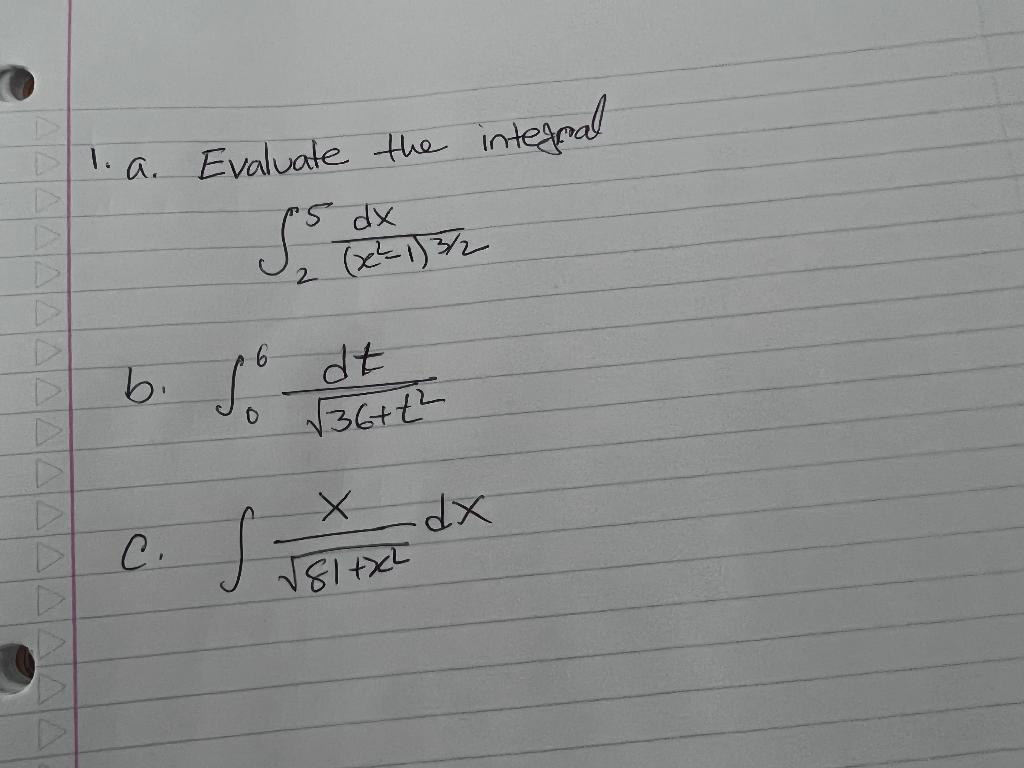 1. a. Evaluate the integral
∫₂⁵ dx/(x²-1)^3/2
b. ∫₀⁶ dt/√36+t²
c. ∫ x/√81+x² dx